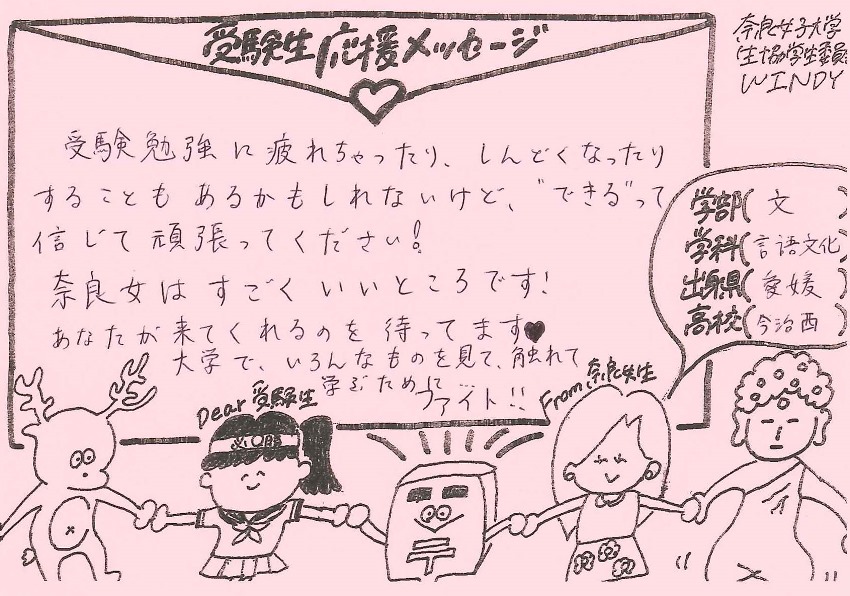 受験生応援メッセージ
奈良女子大学
生協学生委員
WINDY
受験勉強に疲れちゃったり、しんどくなったり
することもあるかもしれないけど、"できる"って
信じて頑張ってください!
奈良女はすごくいいところです!
あなたが来てくれるのを待ってます♥
大学で、いろんなものを見て、触れて
学ぶために…
ファイト!!
学部(文)
学科(言語文化
出身県(愛媛)
高校(今治西)
Dear受験生
From奈良女生
必○勝
〒